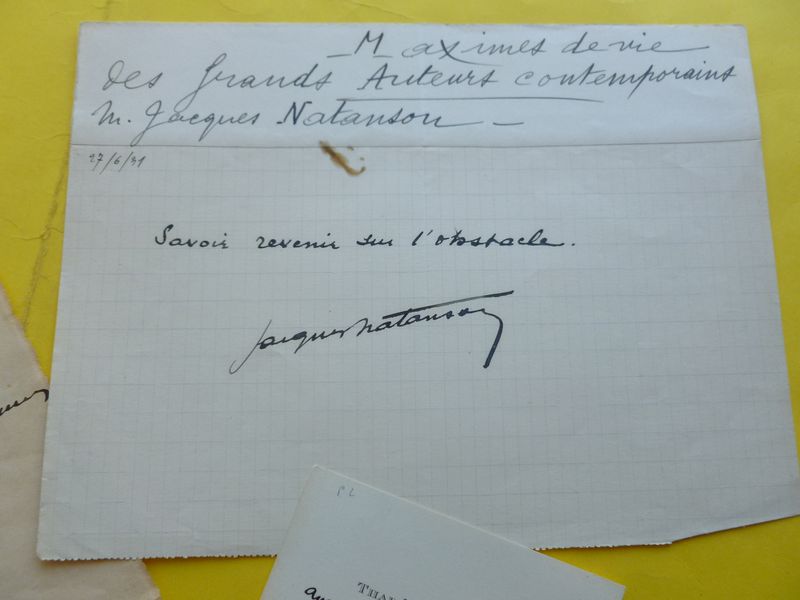 — Maximes de vie
des Grands Auteurs contemporains
M. Jacques Natanson —
27/6/31
Savoir revenir sur l'obstacle.
Jacques Natanson
PL